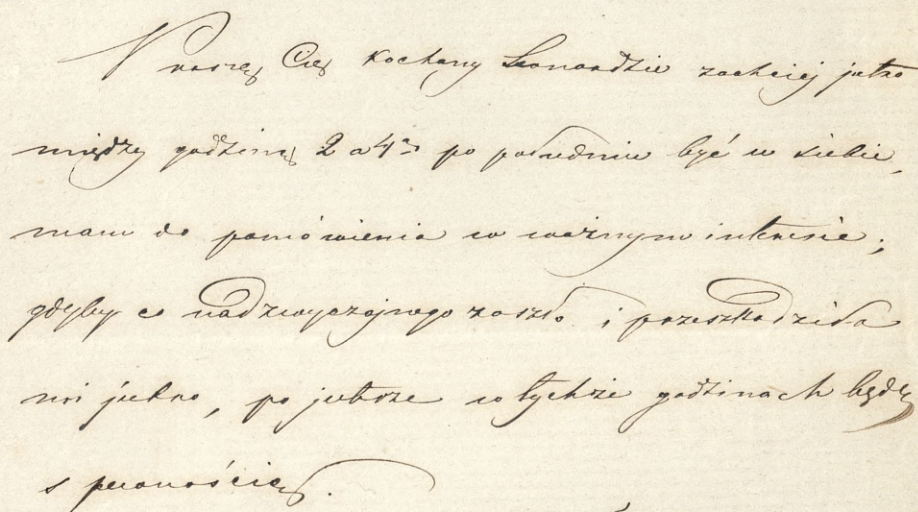 Proszę Cię kochany Leonardzie zachciej jutro
między godziną 2 a 4ą po południu być u siebie,
mam do pomówienia w ważnym interesie;
gdyby co nadzwyczajnego zaszło i przeszkodziło
mi jutro, po jutrze w tychże godzinach będę
s pewnością.